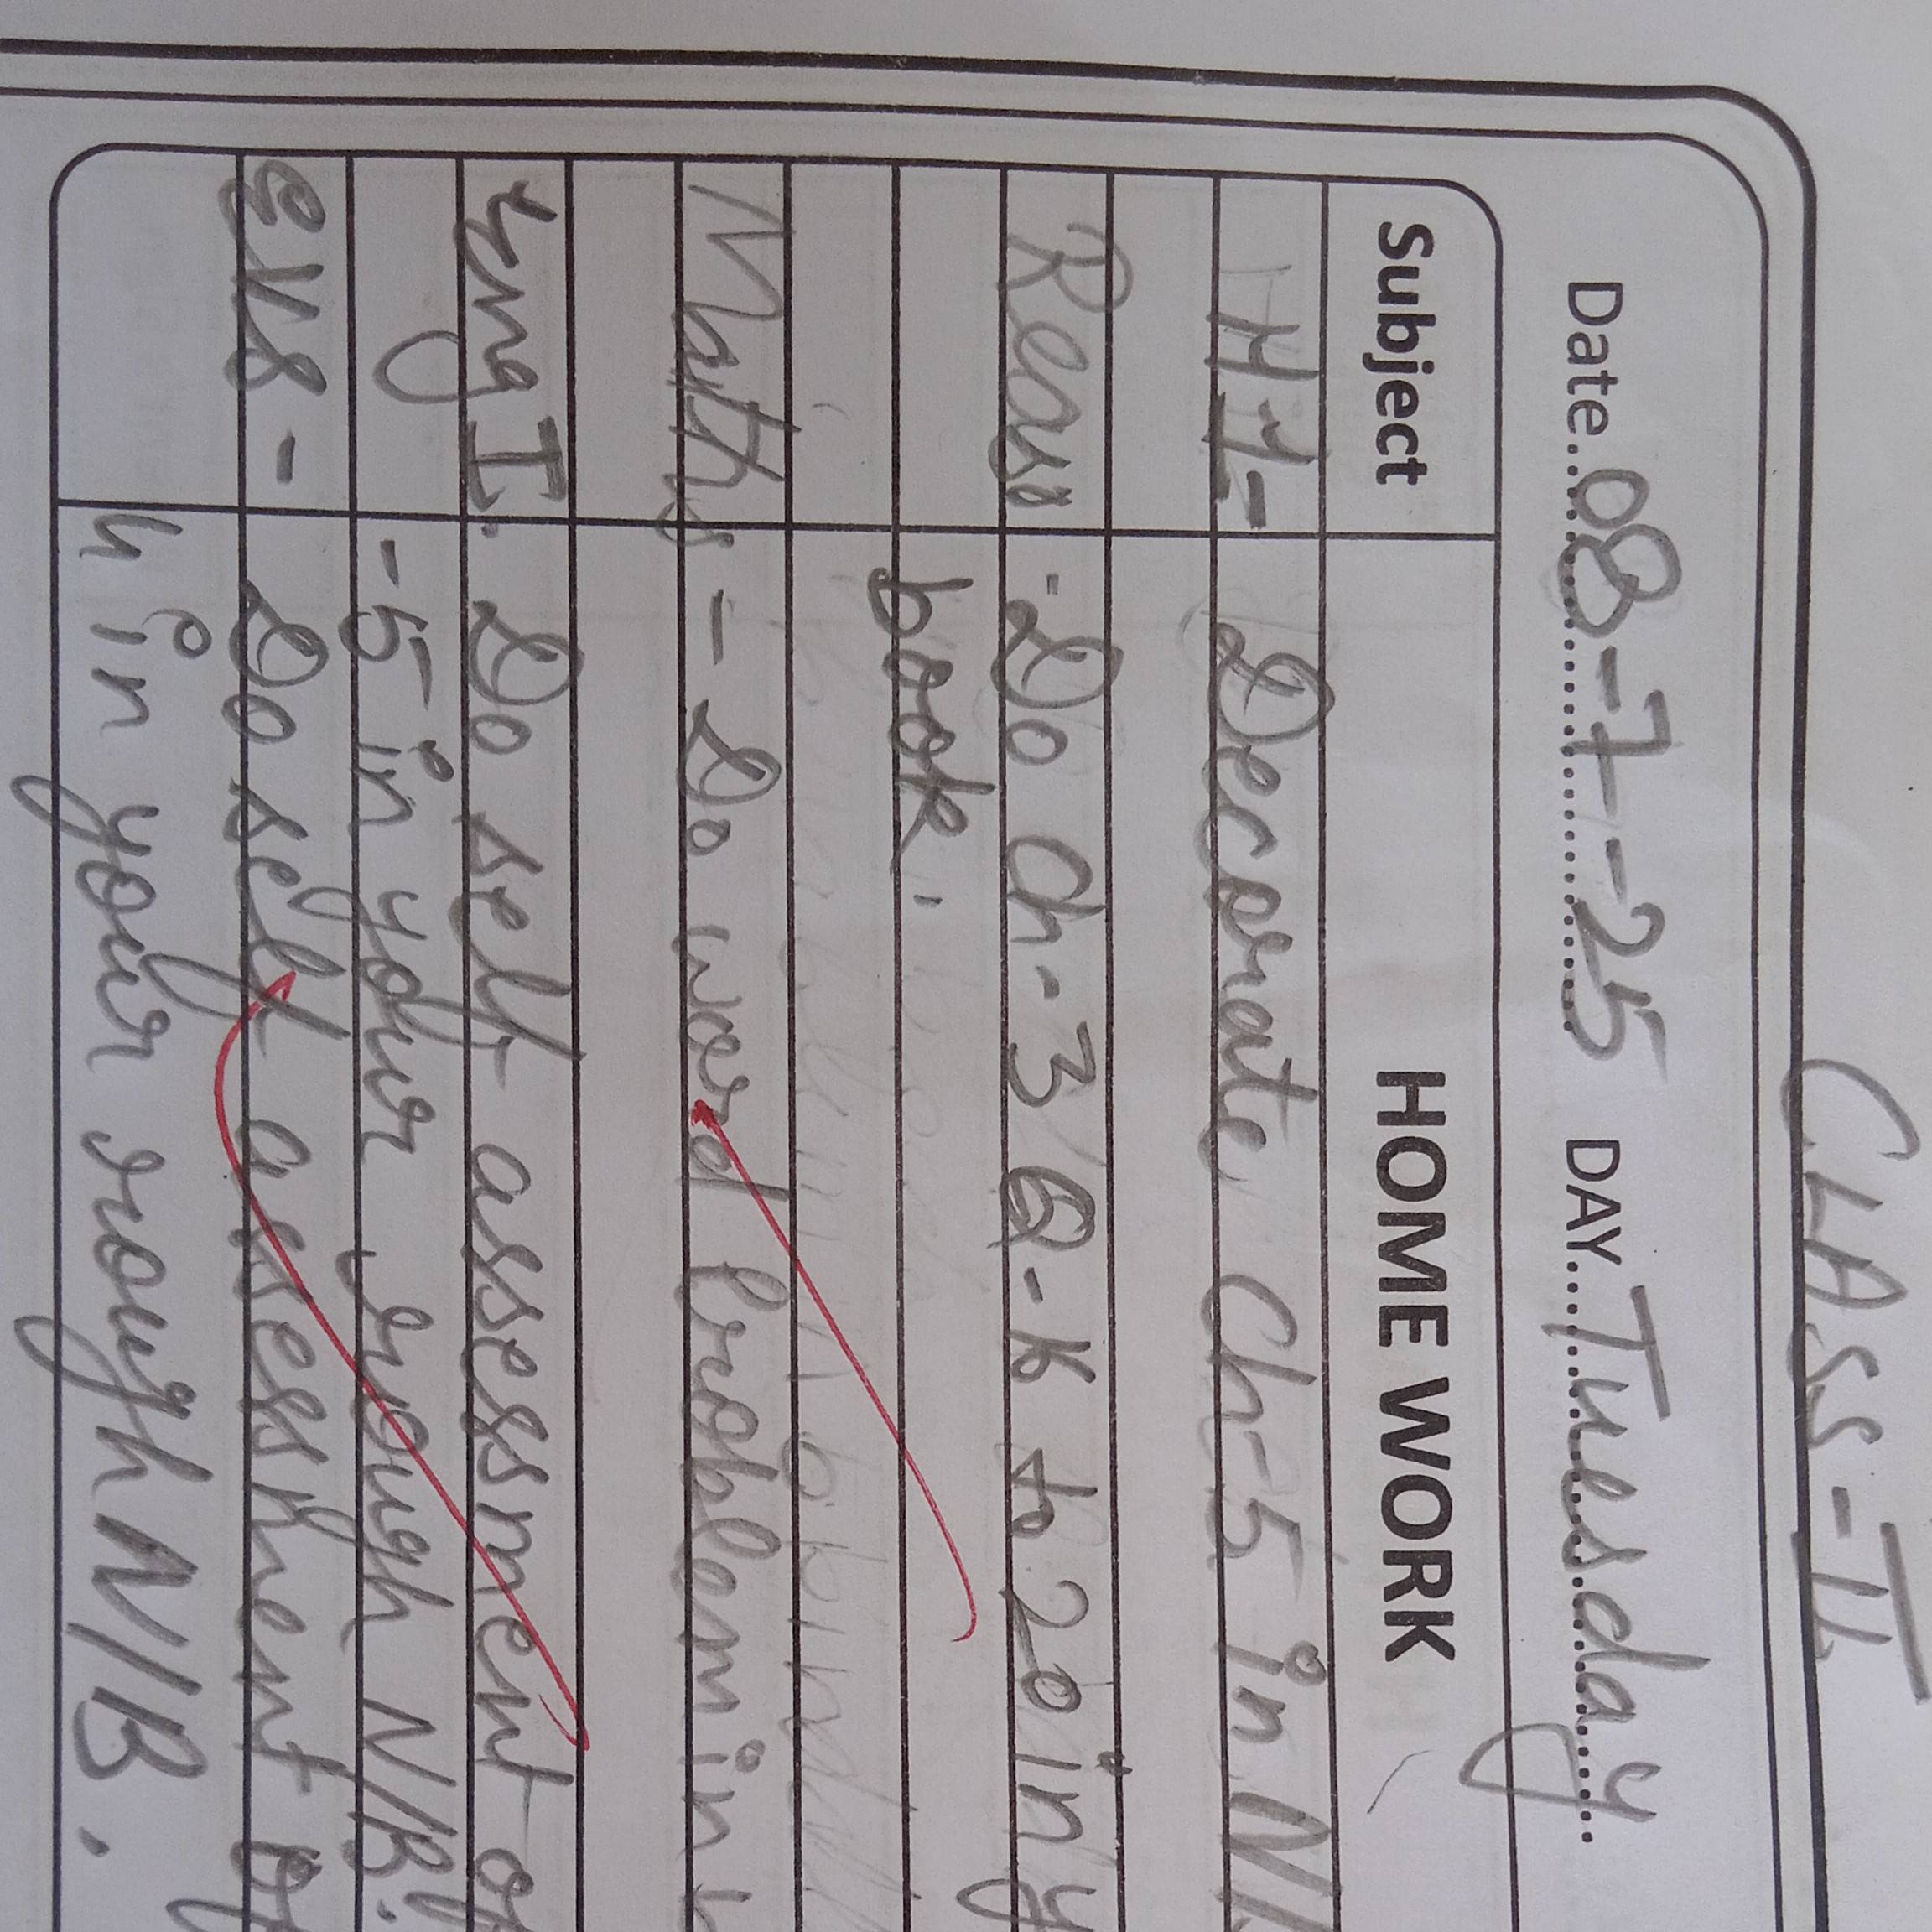 CLASS-II
Date..08-7-25 DAY...Tuesday
Subject HOME WORK
Decorate Ch-5 in
Reas -Do Ch-3 Q-K to 20 in
book.
Maths - Do word problem in
Eng I. Do self assessment of
-5 in your rough N/B.
EVS - Do self assessment of
in your rough N/B.